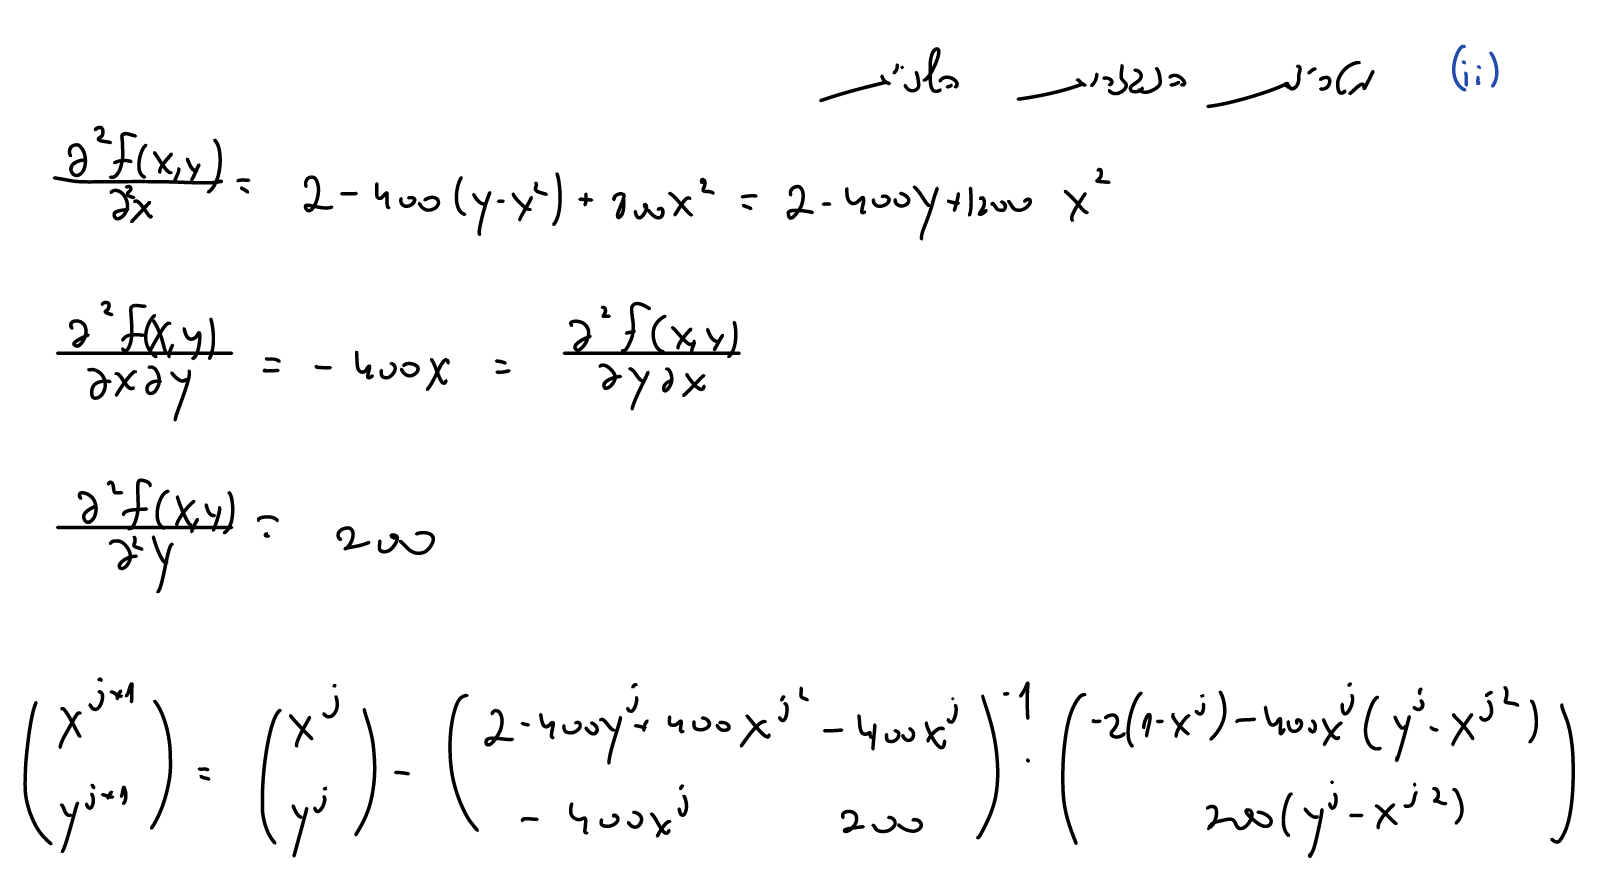 (ii)
∂²f(x,y)/∂²x = 2 - 400(y-x²) + 800x² = 2 - 400y + 1200 x²
∂²f(x,y)/∂x∂y = -400x = ∂²f(x,y)/∂y∂x
∂²f(x,y)/∂²y = 200
(x^{j+1} ; y^{j+1}) = (x^j ; y^j) - (2-400y^j+400x^{j2}  -400x^j ; -400x^j  200)^{-1} · (-2(1-x^j)-400x^j(y^j-x^{j2}) ; 200(y^j-x^{j2}))